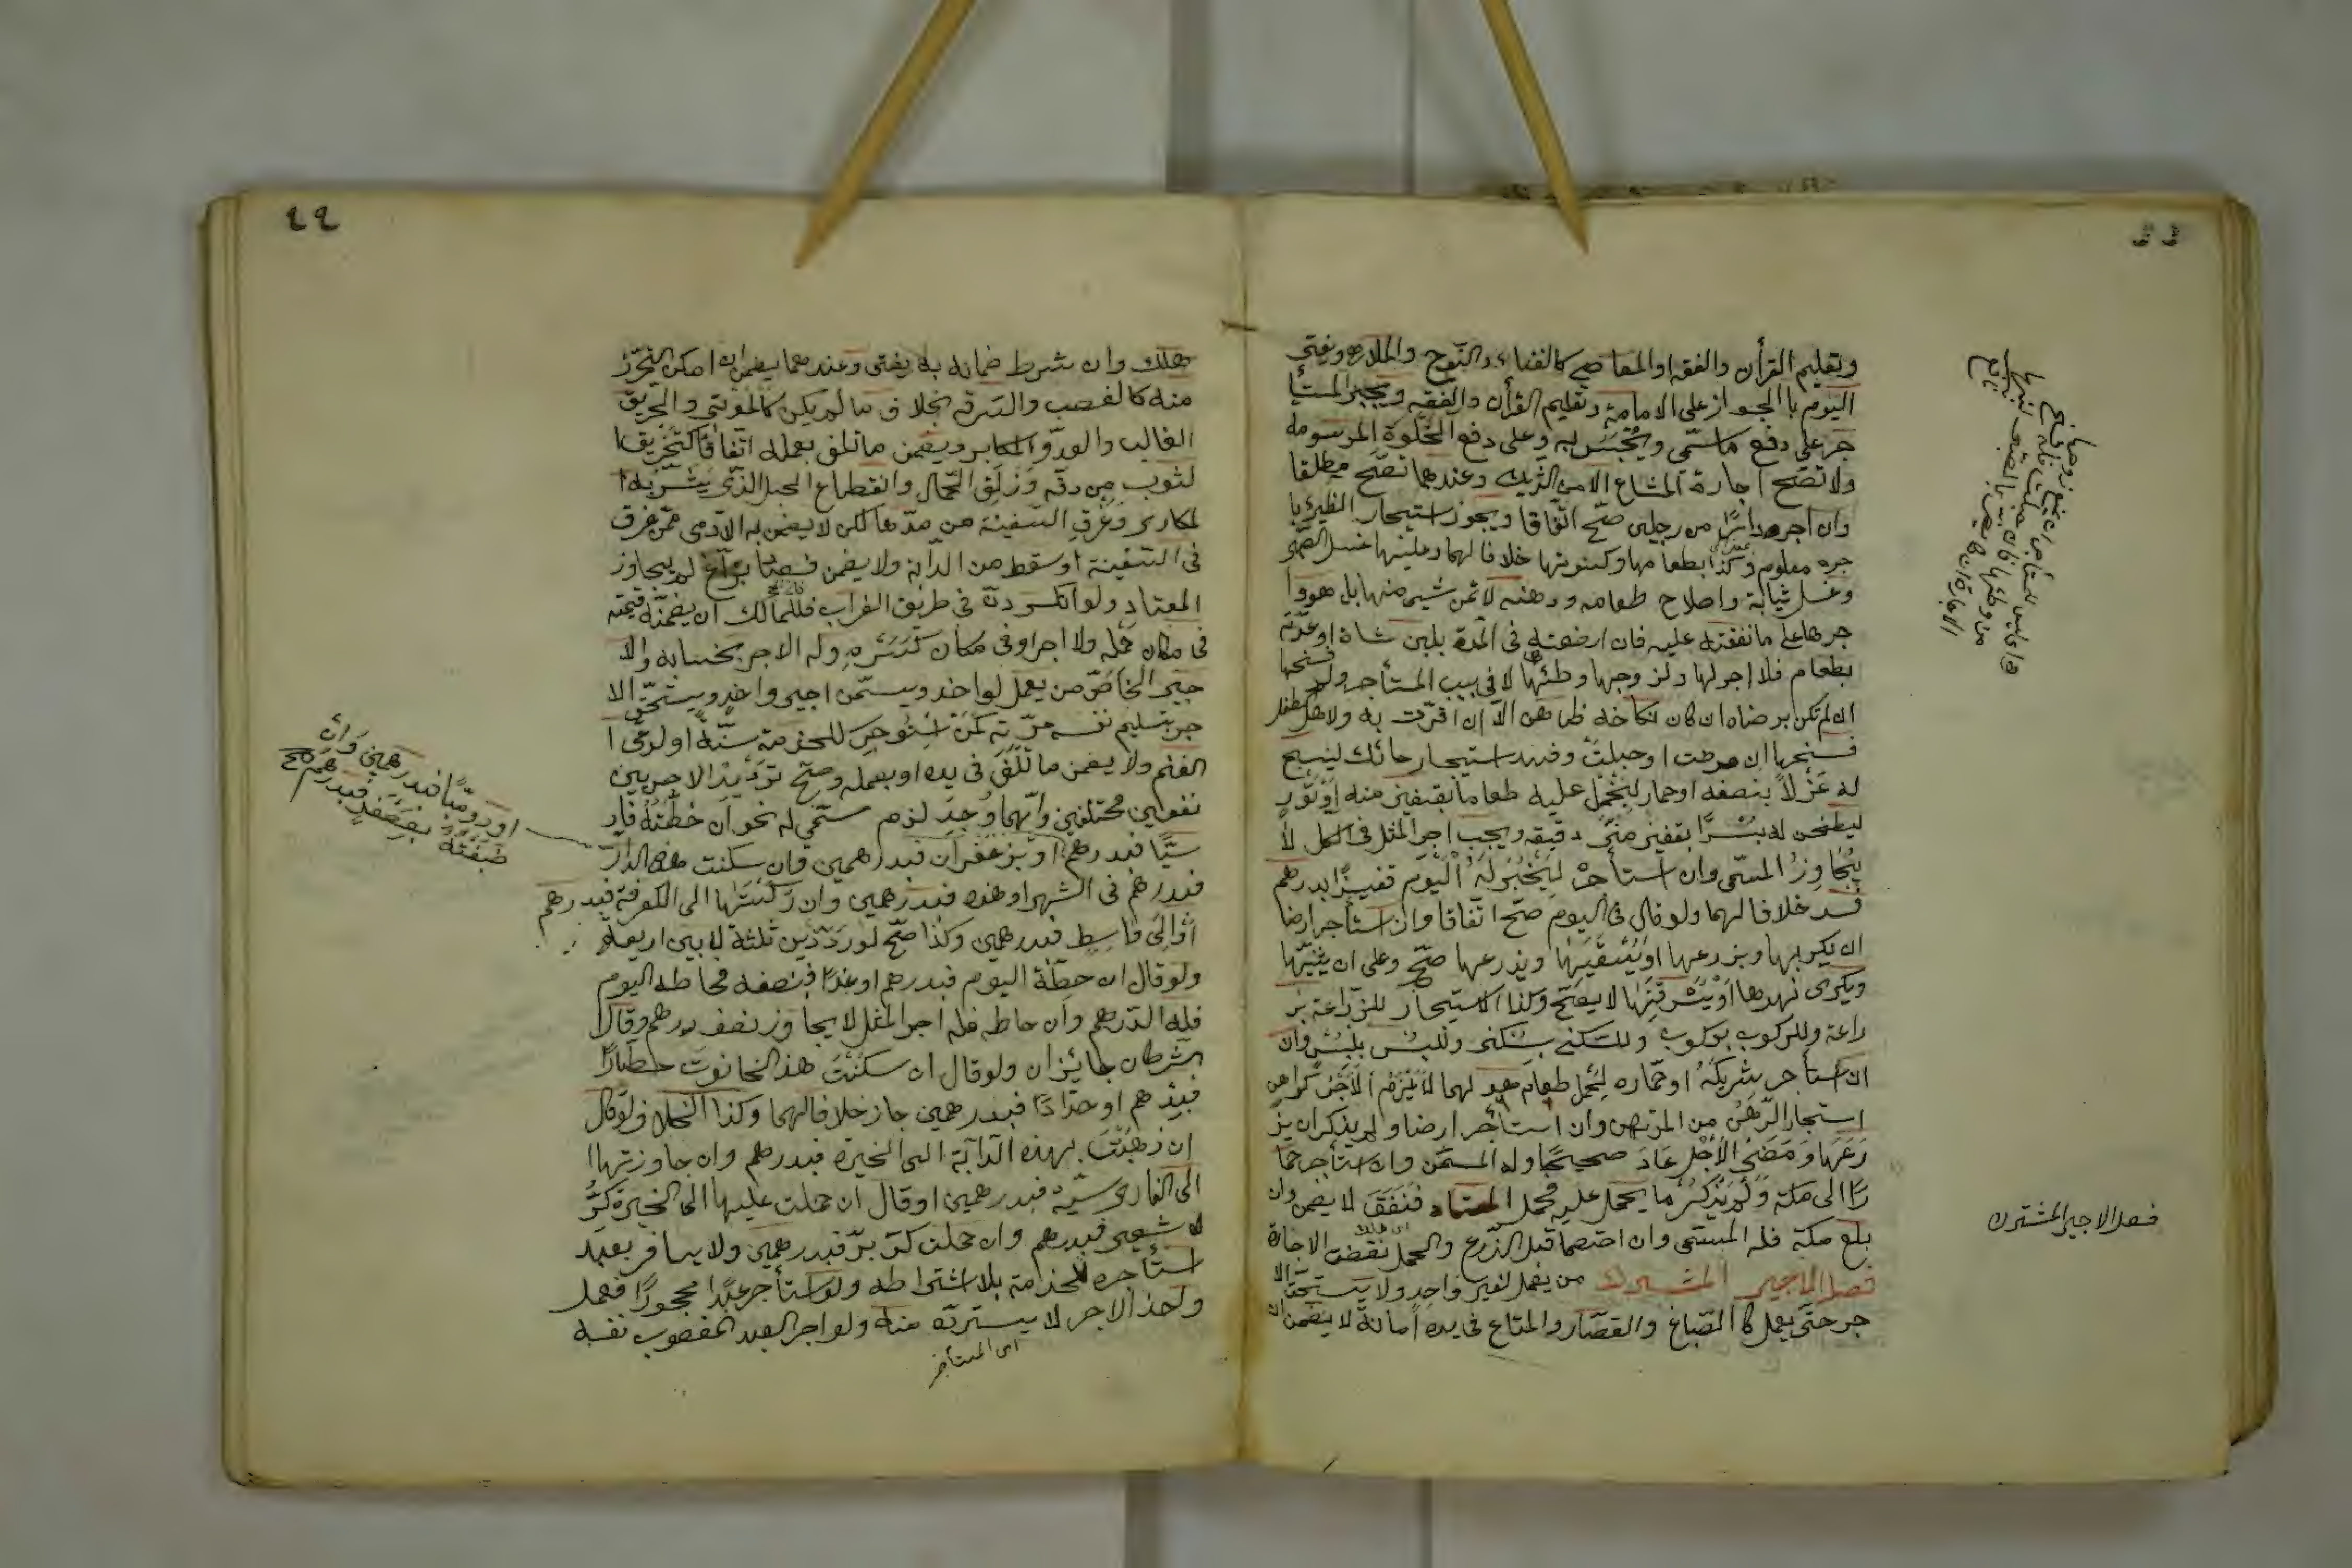 وتعليم القرأن والفقه او المعاصي كالغناء والنوح والملاهي ويفتى
اليوم بالجواز على الامامة وتعليم القرأن والفقه ويجبر المستأ
جر على دفع ما سمّي ويُحْبَسُ به وعلى دفع الحَلْوَة المرسومة
ولا تصحّ اجارة المشاع الا من الشريك وعندهما تصحّ مطلقا
وان آجر دارًا من رجلين صحّ اتّفاقا ويجوز استيجار الظئر با
جرة معلومة وكذا بطعامها وكسوتها خلافا لهما وعليها غسل الصبى
وغسل ثيابه واصلاح طعامه ودهنه لا ثمن شيء منها بل هو وا
جرها على من نفقته عليه فان ارضعته في المدّة بلبن شاة او غذّته
بطعام فلا اجر لها ولزوجها وطئها لا في بيت المستأجر وله فسخها
ان لم تكن برضاه ان كان نكاحه ظاهرا لا ان اقرّت به ولاهل الطفل
فسخها ان مرضت او حبلت وفسد استيجار حائك لينسج
له غَزْلاً بنصفه او حمار ليحْمِل عليه طعاما بقفيز منه او ثور
ليطحن له بُرًّا بقفيز من دقيقه ويجب اجر المثل في الكل لا
يُجاوزُ المسمّى وان استأجره ليخبز له اليوم قفيزًا بدرهم
فسد خلافا لهما ولو قال في اليوم صحّ اتّفاقا وان استأجر ارضا
ان يكربها ويزرعها او يسقيها ويزرعها صحّ وعلى ان يثنّيها
ويكرى نهرها او يُسَرْقِنَها لا يصحّ وكذا الاستيجار للزراعة بز
راعة وللركوب بركوب وللسكنى بسكنى وللبس بلبس وان
استأجر شريكَهُ او حماره لحمل طعام هو لهما لا يلزم الاجر كراهن
استيجار الرّهن من المرتهن وان استأجر ارضا ولم يذكر ان يز
رعها ومضى الاجل عاد صحيحًا وله المسمّى وان استأجر حما
رًا الى مكة ولم يَذْكُرْ ما يحمل عليه فحمل المعتاد فنفق لا يضمن وان
بلغ مكة فله المسمّى وان اختصما قبل الزرع والحمل نقضت الاجارة
فصل الاجير المشترك من يعمل لغير واحد ولا يستحق الا
جر حتّى يعمل كالصّباغ والقصّار والمتاع في يده امانة لا يضمن ان
فصل الاجير المشترك
٤٤
هلك وان شرط ضمانه به يفتى وعندهما يضمن ان امكن التحرّز
منه كالغصب والسّرقة بخلاف ما لم يكن كالموت والحريق
الغالب والعدوّ المكابر ويضمن ما تلف بعمله اتّفاقًا كتخريق ا
لثوب من دقّه وزلق الحمّال وانقطاع الحبل الذي يشدّ به ا
لمكاري وغَرَقِ السّفينة من مدّها لكن لا يضمن به الآدمى ممّن غرق
في السّفينة او سقط من الدابّة ولا يضمن فصّاد او بزّاغ لم يتجاوز
المعتاد ولو انكسر دنّ في طريق الفرات فللمالك ان يضمنه قيمته
في مكان حمله ولا اجر او في مكان كَسْرِه وله الاجر بحسابه والا
جير الخاصّ من يعمل لواحد ويسمّى اجير واحد ويستحقّ الا
جر بتسليم نفسه مدّته كمن استُوجِر للخدمة سنةً او لرعى ا
لغنم ولا يضمن ما تلف في يده او بعمله وصحّ ترديد الاجر بين
نفعين مختلفين وايّهما وُجِد لزم ما سمّي له نحو ان خِطْتَهُ فار
سيًّا فبدرهم او بزعفران فبدرهمين وان سكنت هذه الدار
فبدرهم في الشهر او هذه فبدرهمين وان ركبتها الى الكوفة فبدرهم
او الى واسط فبدرهمين وكذا صحّ لو ردّد بين ثلثة لا بين اربعة
ولو قال ان خطّته اليوم فبدرهم او غدًا فبنصفه فخاطه اليوم
فله الدّرهم وان خاطه غدا فله اجر المثل لا يجاوز نصف درهم وقالا
الشّرطان جائزان ولو قال ان سكنت هذ الحانوت عطّارًا
فبدرهم او حدّادًا فبدرهمين جاز خلافا لهما وكذا الخلاف لو قال
ان ذهبت بهذه الدّابّة الى الحيرة فبدرهم وان جاوزتها ا
لى القادسيّة فبدرهمين او قال ان حملت عليها الى الحيرة كرّ
شعير فبدرهم وان حملت كرّ برّ فبدرهمين ولا يسافر بعبد
استأجره للخدمة بلا اشتراطه ولو استأجر عبدًا محجورًا فعمل
واخذ الاجر لا يستردّه منه ولو آجر العبد المغصوب نفسه
اى المستأجر
او روميًّا فبدرهمين وان
صبغتَهُ بعصفر فبدرهم صح